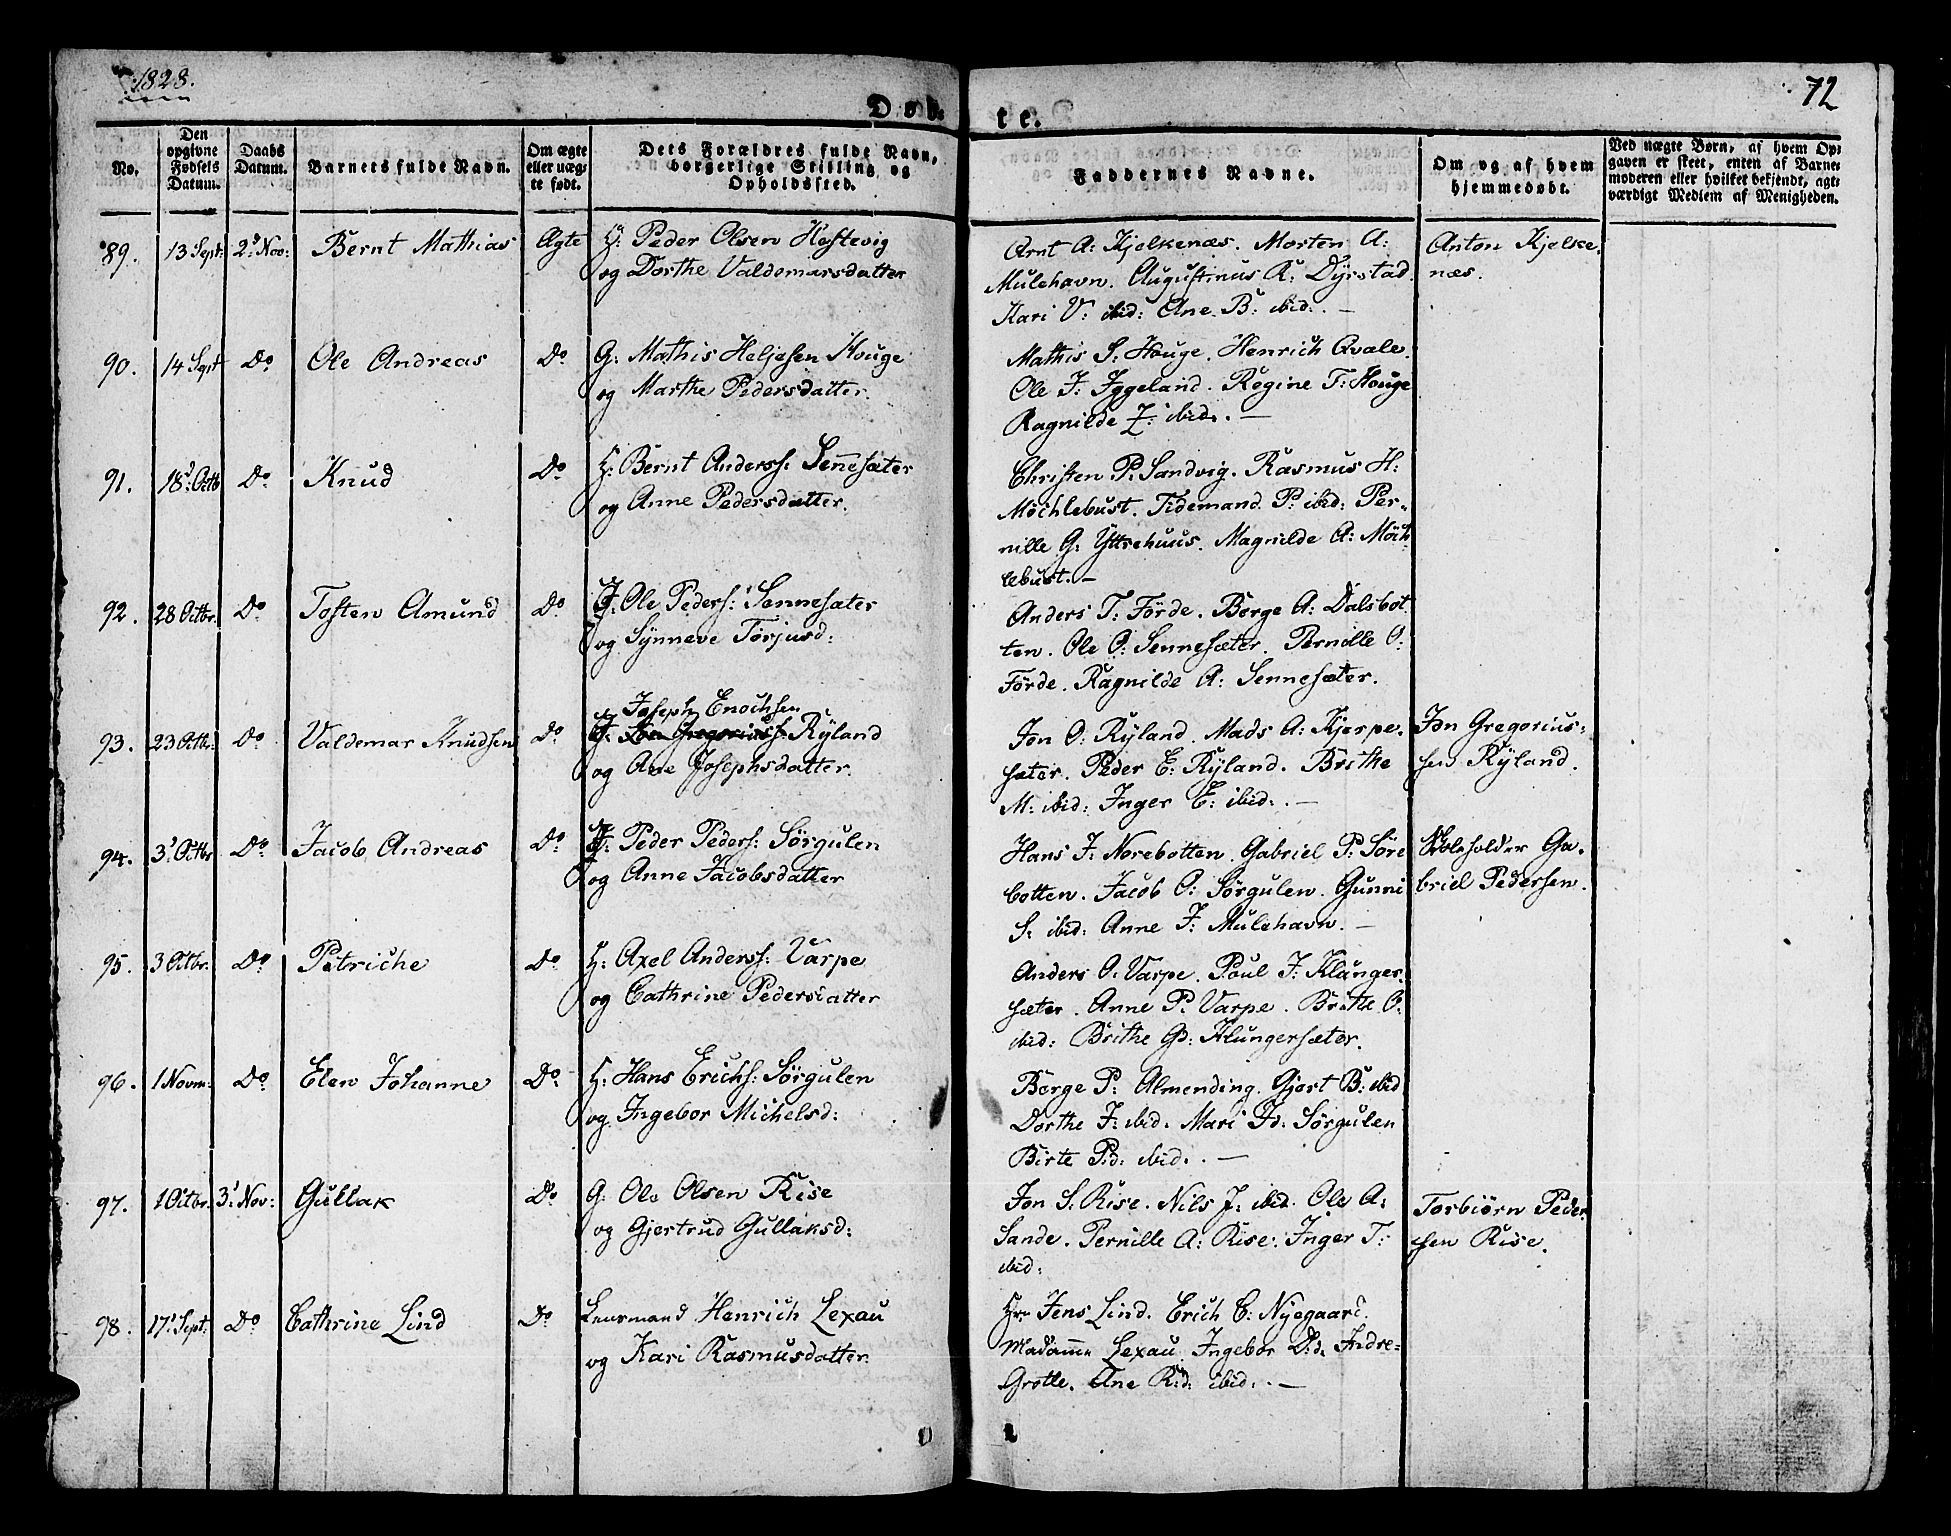 1828.
72
Døbte.
No.
Den opgivne Fødsels Datum.
Daabs Datum.
Barnets fulde Navn.
Om ægte eller uægte født.
Dets Forældres fulde Navn, borgerlige Stilling og Opholdssted.
Faddernes Navne.
Om og af hvem hjemmedøbt.
Ved uægte Børn, af hvem Opgaven er skeet, enten af Barnemoderen eller hvilket bekjendt, agtværdigt Medlem af Menigheden.
89. 13 Sept: 2d Nov: Bernt Mathias Ægte H: Peder Olsen Hestevig
og Dorthe Valdemarsdatter
Arnt A: Kjelkenæs. Morten A:
Mulehavn. Augustinus R: Dyrstad.
Kari V: ibid: Ane B: ibid: . —
Anton Kjelke-
næs.
90. 14 Sept Do Ole Andreas Do G: Mathis Heljesen Houge
og Marthe Pedersdatter.
Mathis S: Houge. Henrich Qvale.
Ole J: Iggeland. Regine T: Houge
Ragnilde L: ibid: . —
91. 18d Octb Do Knud Do H: Bernt Anderss: Sennesæter
og Anne Pedersdatter.
Christen P: Sandvig. Rasmus H:
Möchlebust. Tidemand P: ibid: Per-
nille G: Yttrehuus. Magnilde A: Möch-
lebust. —
92. 28 Octbr. Do Tosten Amund Do G: Ole Peders: Sennesæter
og Synneve Torjusd:
Anders T: Förde. Berge A: Dalsbot
ten. Ole O: Sennesæter. Pernille O:
Förde. Ragnilde A: Sennesæter.
93. 23 Octbr: Do Valdemar Knudsen Do Joseph Enochsen
G: Jon Gregoriuss: Ryland
og Ane Josephsdatter.
Jon O: Ryland. Mads A: Kjerpe-
sæter. Peder E: Ryland. Brithe
M: ibid: Inger E: ibid: . —
Jon Gregorius-
sen Ryland.
94. 3d Octbr Do Jacob Andreas Do Peder Peders: Sörgulen
og Anne Jacobsdatter
Hans J: Norebotten. Gabriel P: Söre
botten. Jacob O: Sörgulen. Gunni
S: ibid: Anne J: Mulehavn. —
Skoleholder Ga-
briel Pedersen.
95. 3 Octbr. Do Petriche Do H: Axel Anderss: Varpe
og Cathrine Pedersdatter
Anders O: Varpe. Poul J: Klunger-
sæter. Anne P: Varpe. Brithe O:
ibid: Brithe G: Klungersæter.
96. 1 Novm: Do Elen Johanne Do H: Hans Erichs: Sörgulen
og Ingebor Michelsd:
Berge P: Almending. Gjert B: ibid
Dorthe J: ibid. Mari Pd: Sörgulen
Birte P.d: ibid. . —
97. 1 Octbr. 3d Nov: Gullak Do G: Ole Olsen Rise
og Gjertrud Gullaksd:
Jon S: Rise. Nils J: ibid. Ole A:
Sande. Pernille A: Rise. Inger T:
ibid:
Torbiörn Peder
sen Rise.
98. 17d Sept: Do Cathrine Lind Do Leensmand Henrich Lexau
og Kari Rasmusdatter.
Hr. Jens Lind. Erich C: Nyegaard.
Madamme Lexau Ingebor D:d. Indre-
Grotle. Ane R:d: ibid: . —